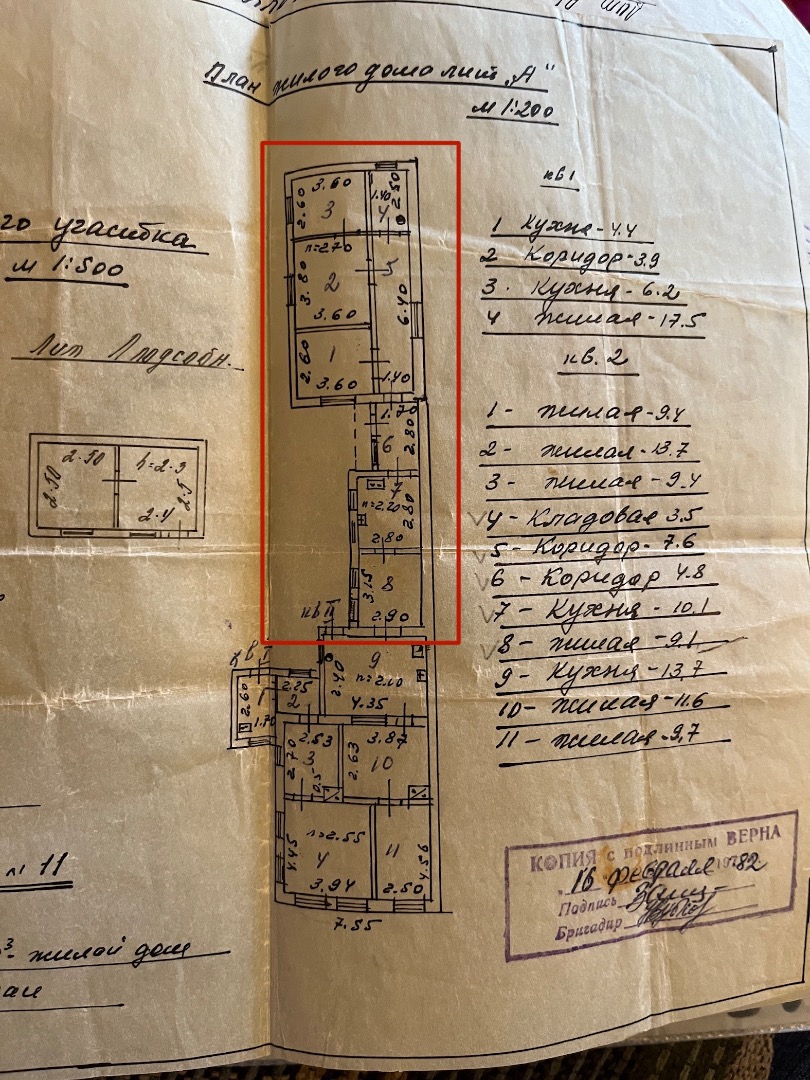 План жилого дома лит „А"
М 1:200
го участка
М 1:500
Лит Подсобн.
2.50
h=2.5
2.50
2.4
2.5
№ 11
жилой дом
3.60
2.60
3
1.40
4
2.50
h=2.70
2
3.80
3.60
5
6.40
2.60
1
3.60
1.40
1.70
6
2.80
7
h=2.20
2.80
2.80
3.15
8
2.90
кв II
кв I
9
2.40
4.35
1
2.60
1.70
2.25
2
2.53
3.87
2.70
3
0.5
2.63
10
h=2.55
4.45
4
3.94
11
4.56
2.50
7.55
кв 1
1 Кухня-4.4
2 Коридор-3.9
3. Кухня-6.2
4 жилая-17.5
кв. 2
1- жилая-9.4
2- жилая-13.7
3- жилая-9.4
4- Кладовая 3.5
5- Коридор-7.6
6- Коридор 4.8
7- Кухня-10.1
8- жилая-9.1
9- Кухня-13,7
10- жилая-11.6
11- жилая-9,7
КОПИЯ с подлинным ВЕРНА
16 февраля 1982
Подпись
Бригадир